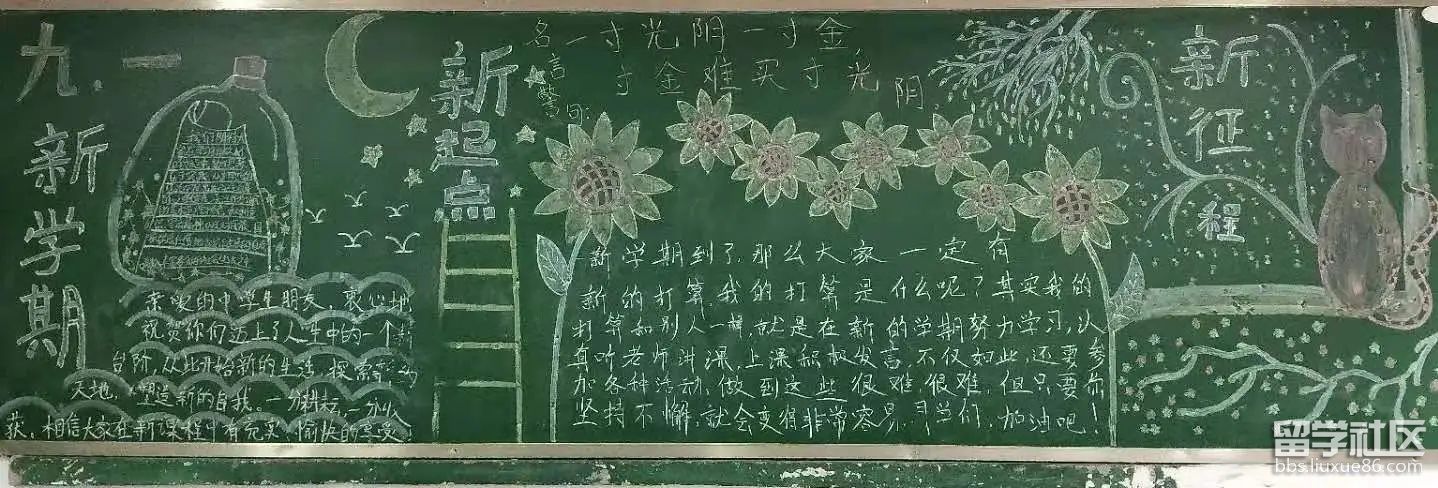 九.一
新学期
我们
亲爱的中学生朋友，衷心地
祝贺你们迈上了人生中的一个新
台阶，从此开始新的生活，探索新的
天地，塑造新的自我。一分耕耘，一分收
获，相信大家在新课程中有充实、愉快的享受
新起点
名言警句
一寸光阴一寸金，
寸金难买寸光阴
新学期到了，那么大家一定有
新的打算，我的打算是什么呢？其实我的
打算和别人一样，就是在新的学期努力学习，认
真听老师讲课，上课积极发言，不仅如此，还要参
加各种活动，做到这些很难很难，但只要你
坚持不懈，就会变得非常容易，同学们，加油吧！
新征程
留学社区
bbs.liuxue86.com